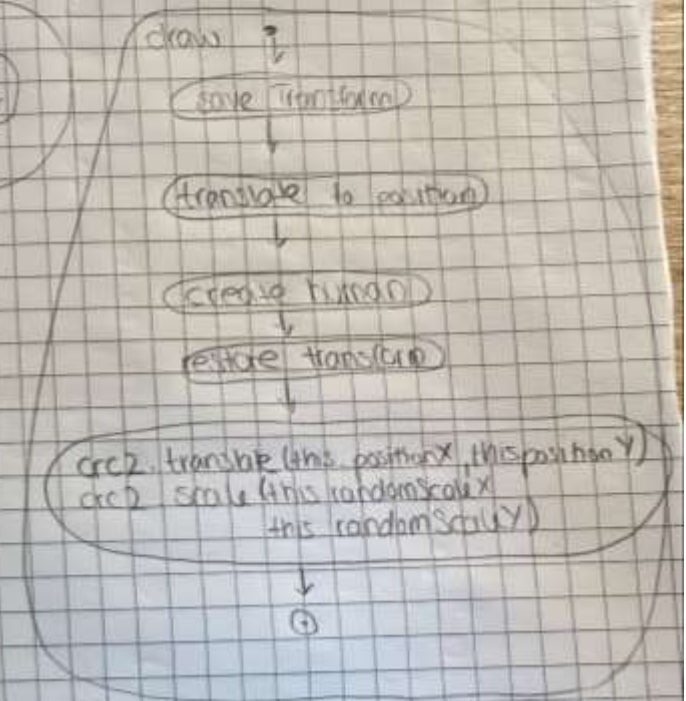 draw
save transform
translate to position
create human
restore transform
crc2.translate (this.positionX, this.positionY)
crc2 scale (this randomScaleX
this randomScaleY)